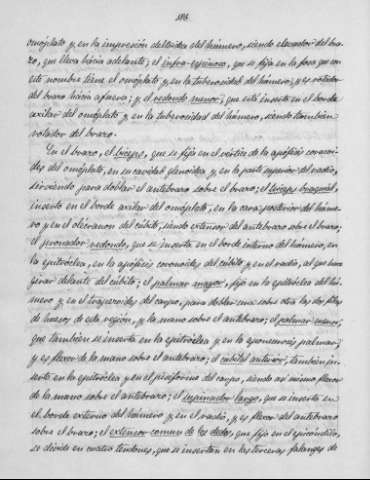 omóplato y en la impresión deltoidea del húmero, siendo elevador del bra-
zo, que lleva hácia adelante; el infra-espinoso, que se fija en la fosa que con
este nombre tiene el omóplato y en la tuberosidad del húmero; y es rotador
del brazo hácia afuera; y el redondo menor, que está inserto en el borde
axilar del omóplato y en la tuberosidad del húmero, siendo tambien
rotador del brazo.
En el brazo, el biceps, que se fija en el vértice de la apófisis coracoi-
des del omóplato, en su cavidad glenoidea y en la parte superior del radio,
sirviendo para doblar el antebrazo sobre el brazo; el triceps braquial,
inserto en el borde axilar del omóplato, en la cara posterior del húme-
ro y en el olécranon del cúbito, siendo extensor del antebrazo sobre el brazo;
el pronador redondo, que se inserta en el borde interno del húmero, en
la epitróclea, en la apófisis coronoides del cúbito y en el radio, al que hace
girar delante del cúbito; el palmar mayor, fijo en la epitróclea del hú-
mero y en el trapezoides del carpo, para doblar una sobre otra las dos filas
de huesos de esta región, y la mano sobre el antebrazo; el palmar menor,
que tambien se inserta en la epitróclea y en la aponeurosis palmar,
y es flexor de la mano sobre el antebrazo; el cubital anterior, tambien in-
serto en la epitróclea y en el pisiforme del carpo, siendo así mismo flexor
de la mano sobre el antebrazo; el supinador largo, que se inserta en
el borde externo del húmero y en el radio, y es flexor del antebrazo
sobre el brazo; el extensor comun de los dedos, que fijo en el epicóndilo,
se divide en cuatro tendones, que se insertan en las terceras falanges de